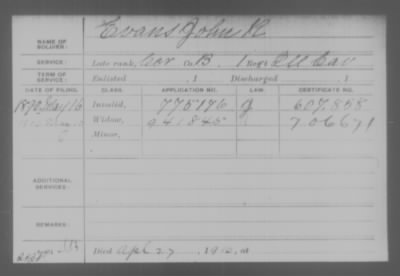 NAME OF SOLDIER: Evans John R
SERVICE: Late rank, Cor Co. B, 1 Reg't Cav
TERM OF SERVICE: Enlisted , 1 Discharged , 1
DATE OF FILING. CLASS. APPLICATION NO. LAW. CERTIFICATE NO.
Invalid, 775176 g 607.858
Widow, 941845 706671
Minor,
ADDITIONAL SERVICES:
REMARKS:
Died Apl 27, 191 , at